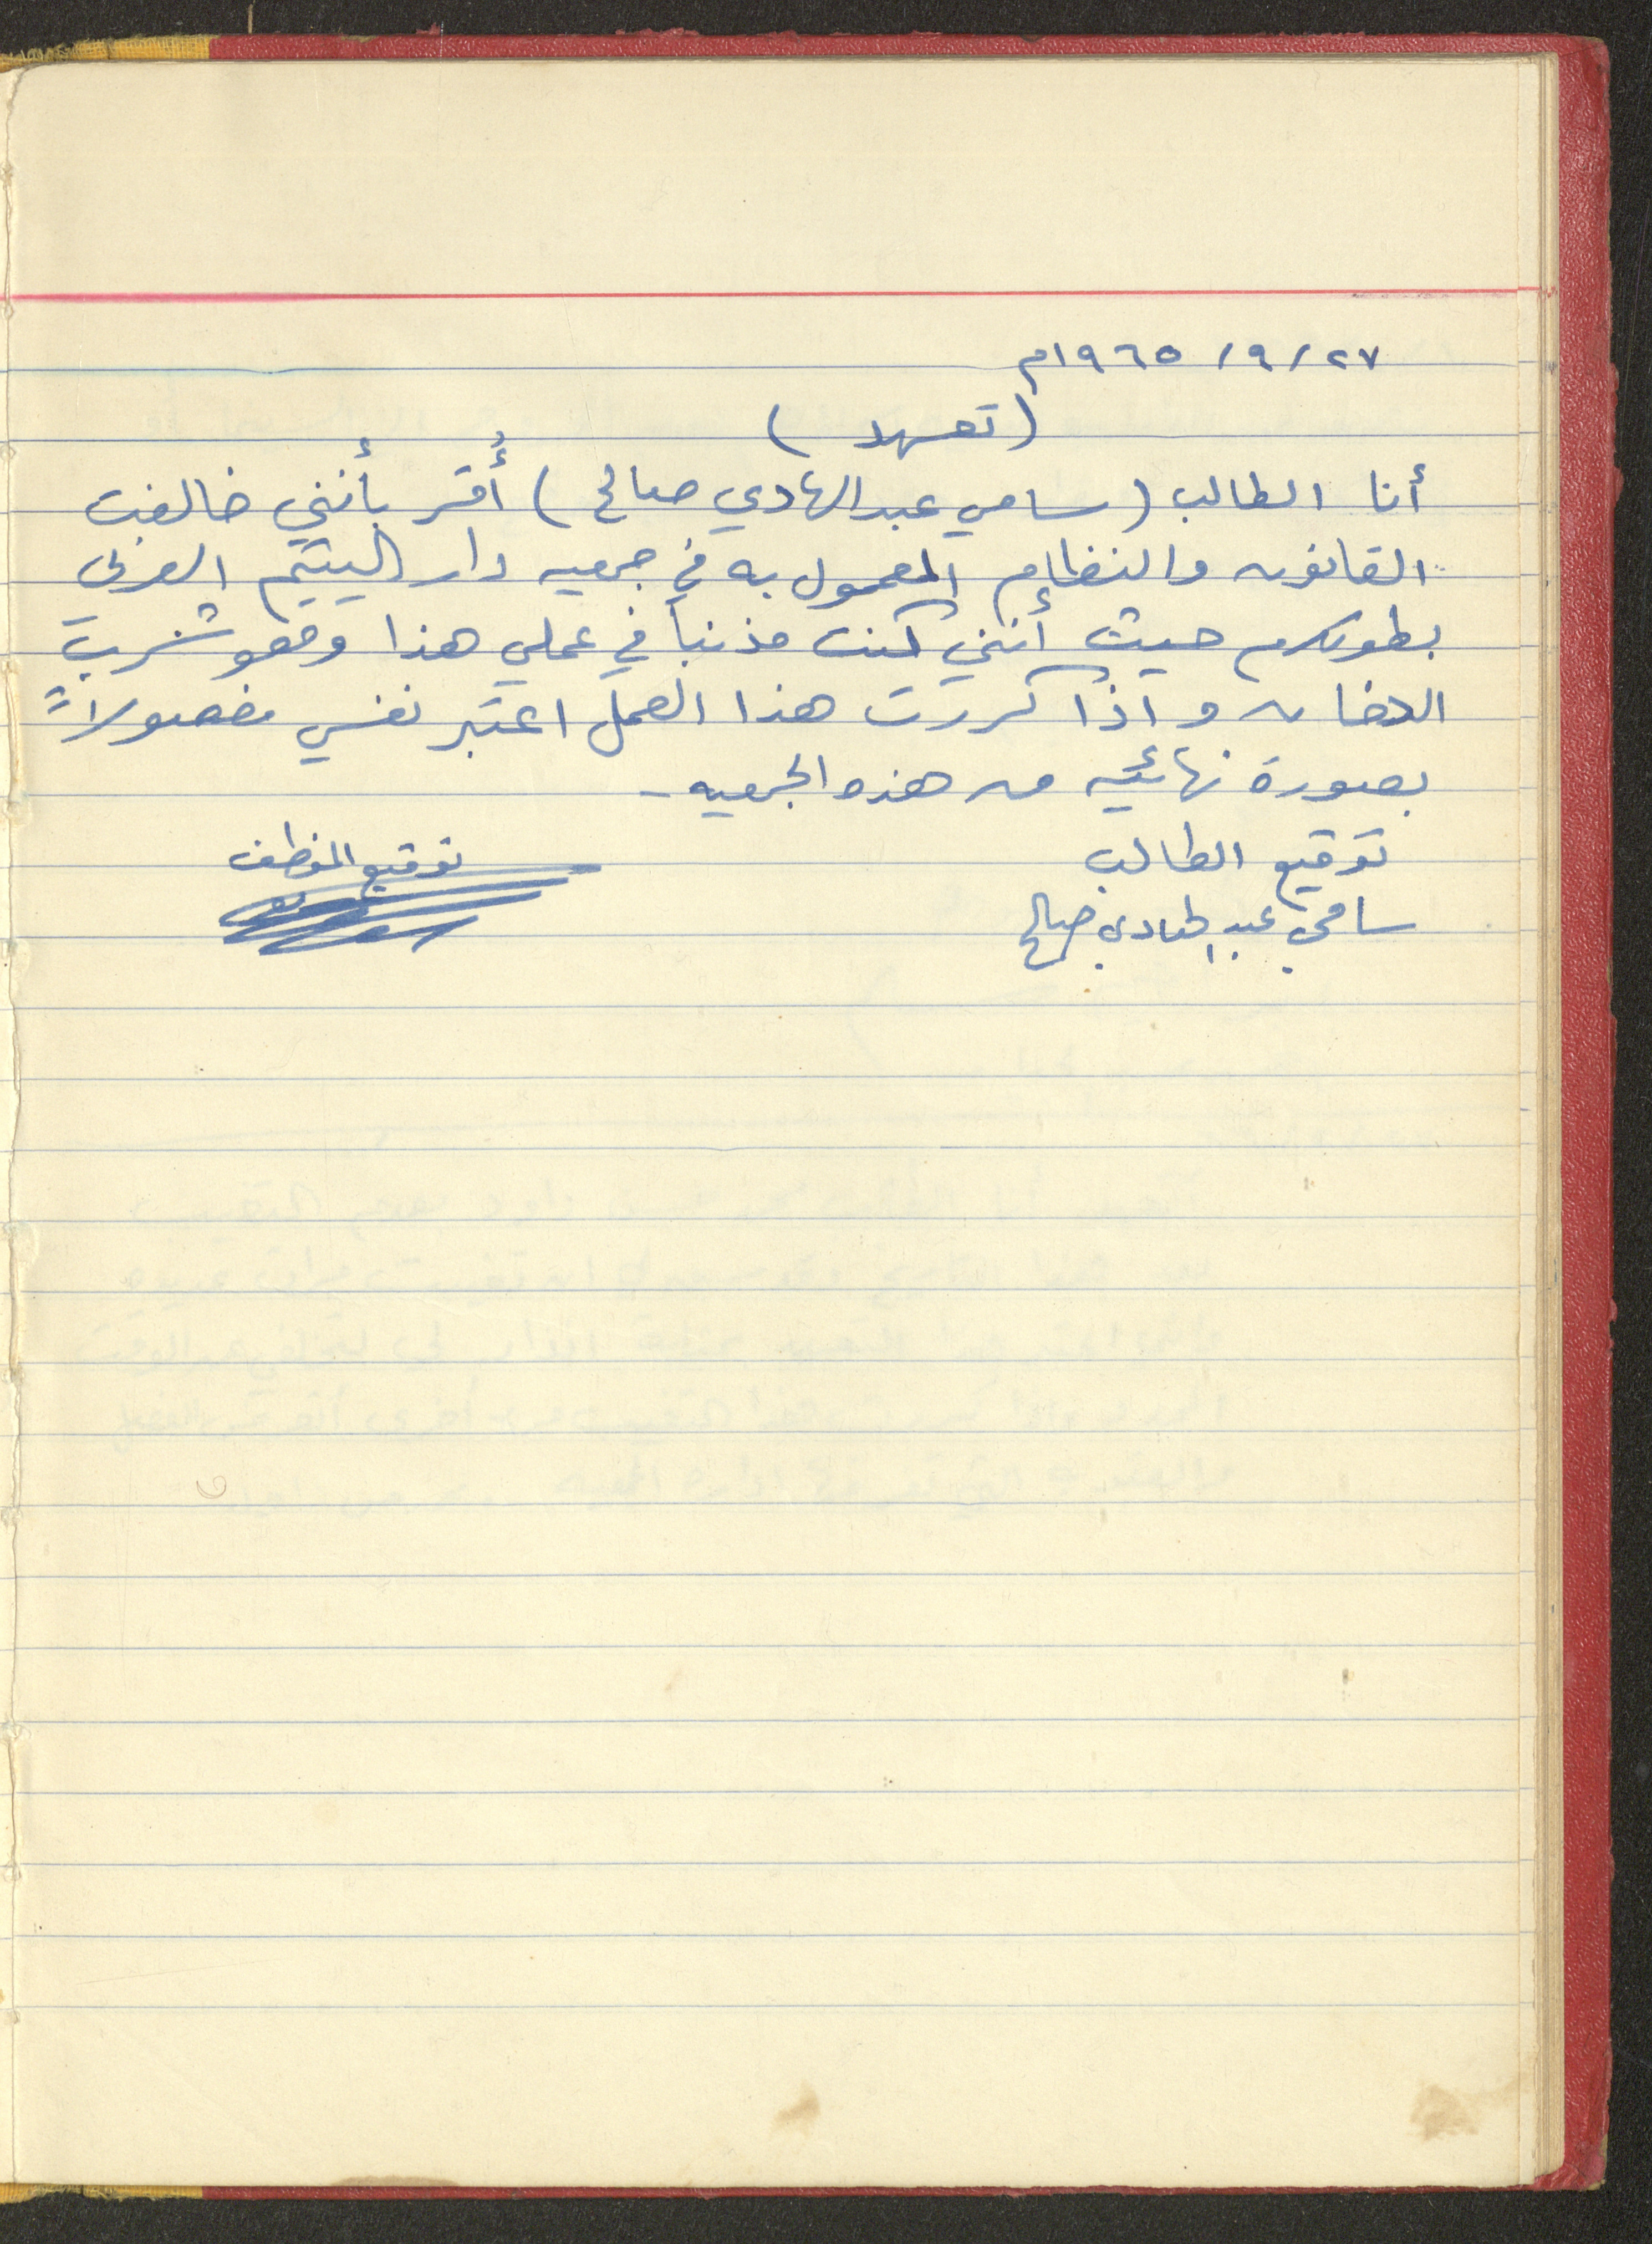 ٢٧/ ٩/ ١٩٦٥م
( تعهد )
أنا الطالب ( سامي عبد الهادي صالح ) أُقر بأنني خالفت
القانون والنظام المعمول به في جمعيه دار اليتيم العربي
بطولكرم حيث أنني كنت مذنباً في عملي هذا وهو شرب
الدخان و اذا كررت هذا العمل اعتبر نفسي مفصولاً
بصورة نهائيه من هذه الجمعيه -
توقيع الطالب توقيع الموظف
سامي عبد الهادي صالح